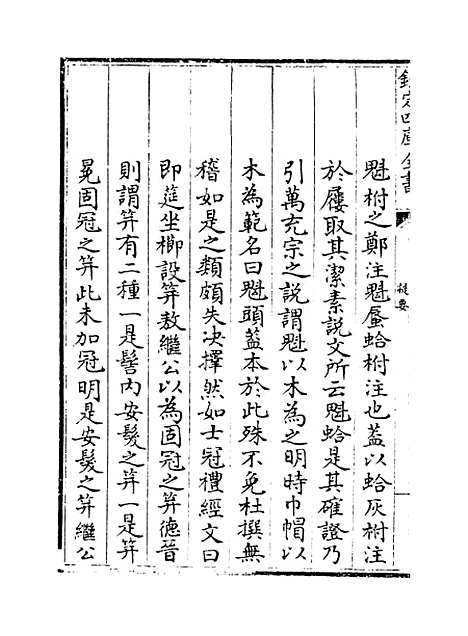 欽定四庫全書
提要
魁柎之鄭注魁蜃蛤柎注也葢以蛤灰柎注
於屨取其潔素說文所云魁蛤是其確證乃
引萬充宗之説謂魁以木為之明時巾帽以
木為範名曰魁頭葢本於此殊不免杜撰無
稽如是之類頗失决擇然如士冠禮經文曰
即筵坐櫛設笄敖繼公以為固冠之笄德晉
則謂笄有二種一是髻內安髮之笄一是笄
冕固冠之笄此未加冠明是安髮之笄繼公